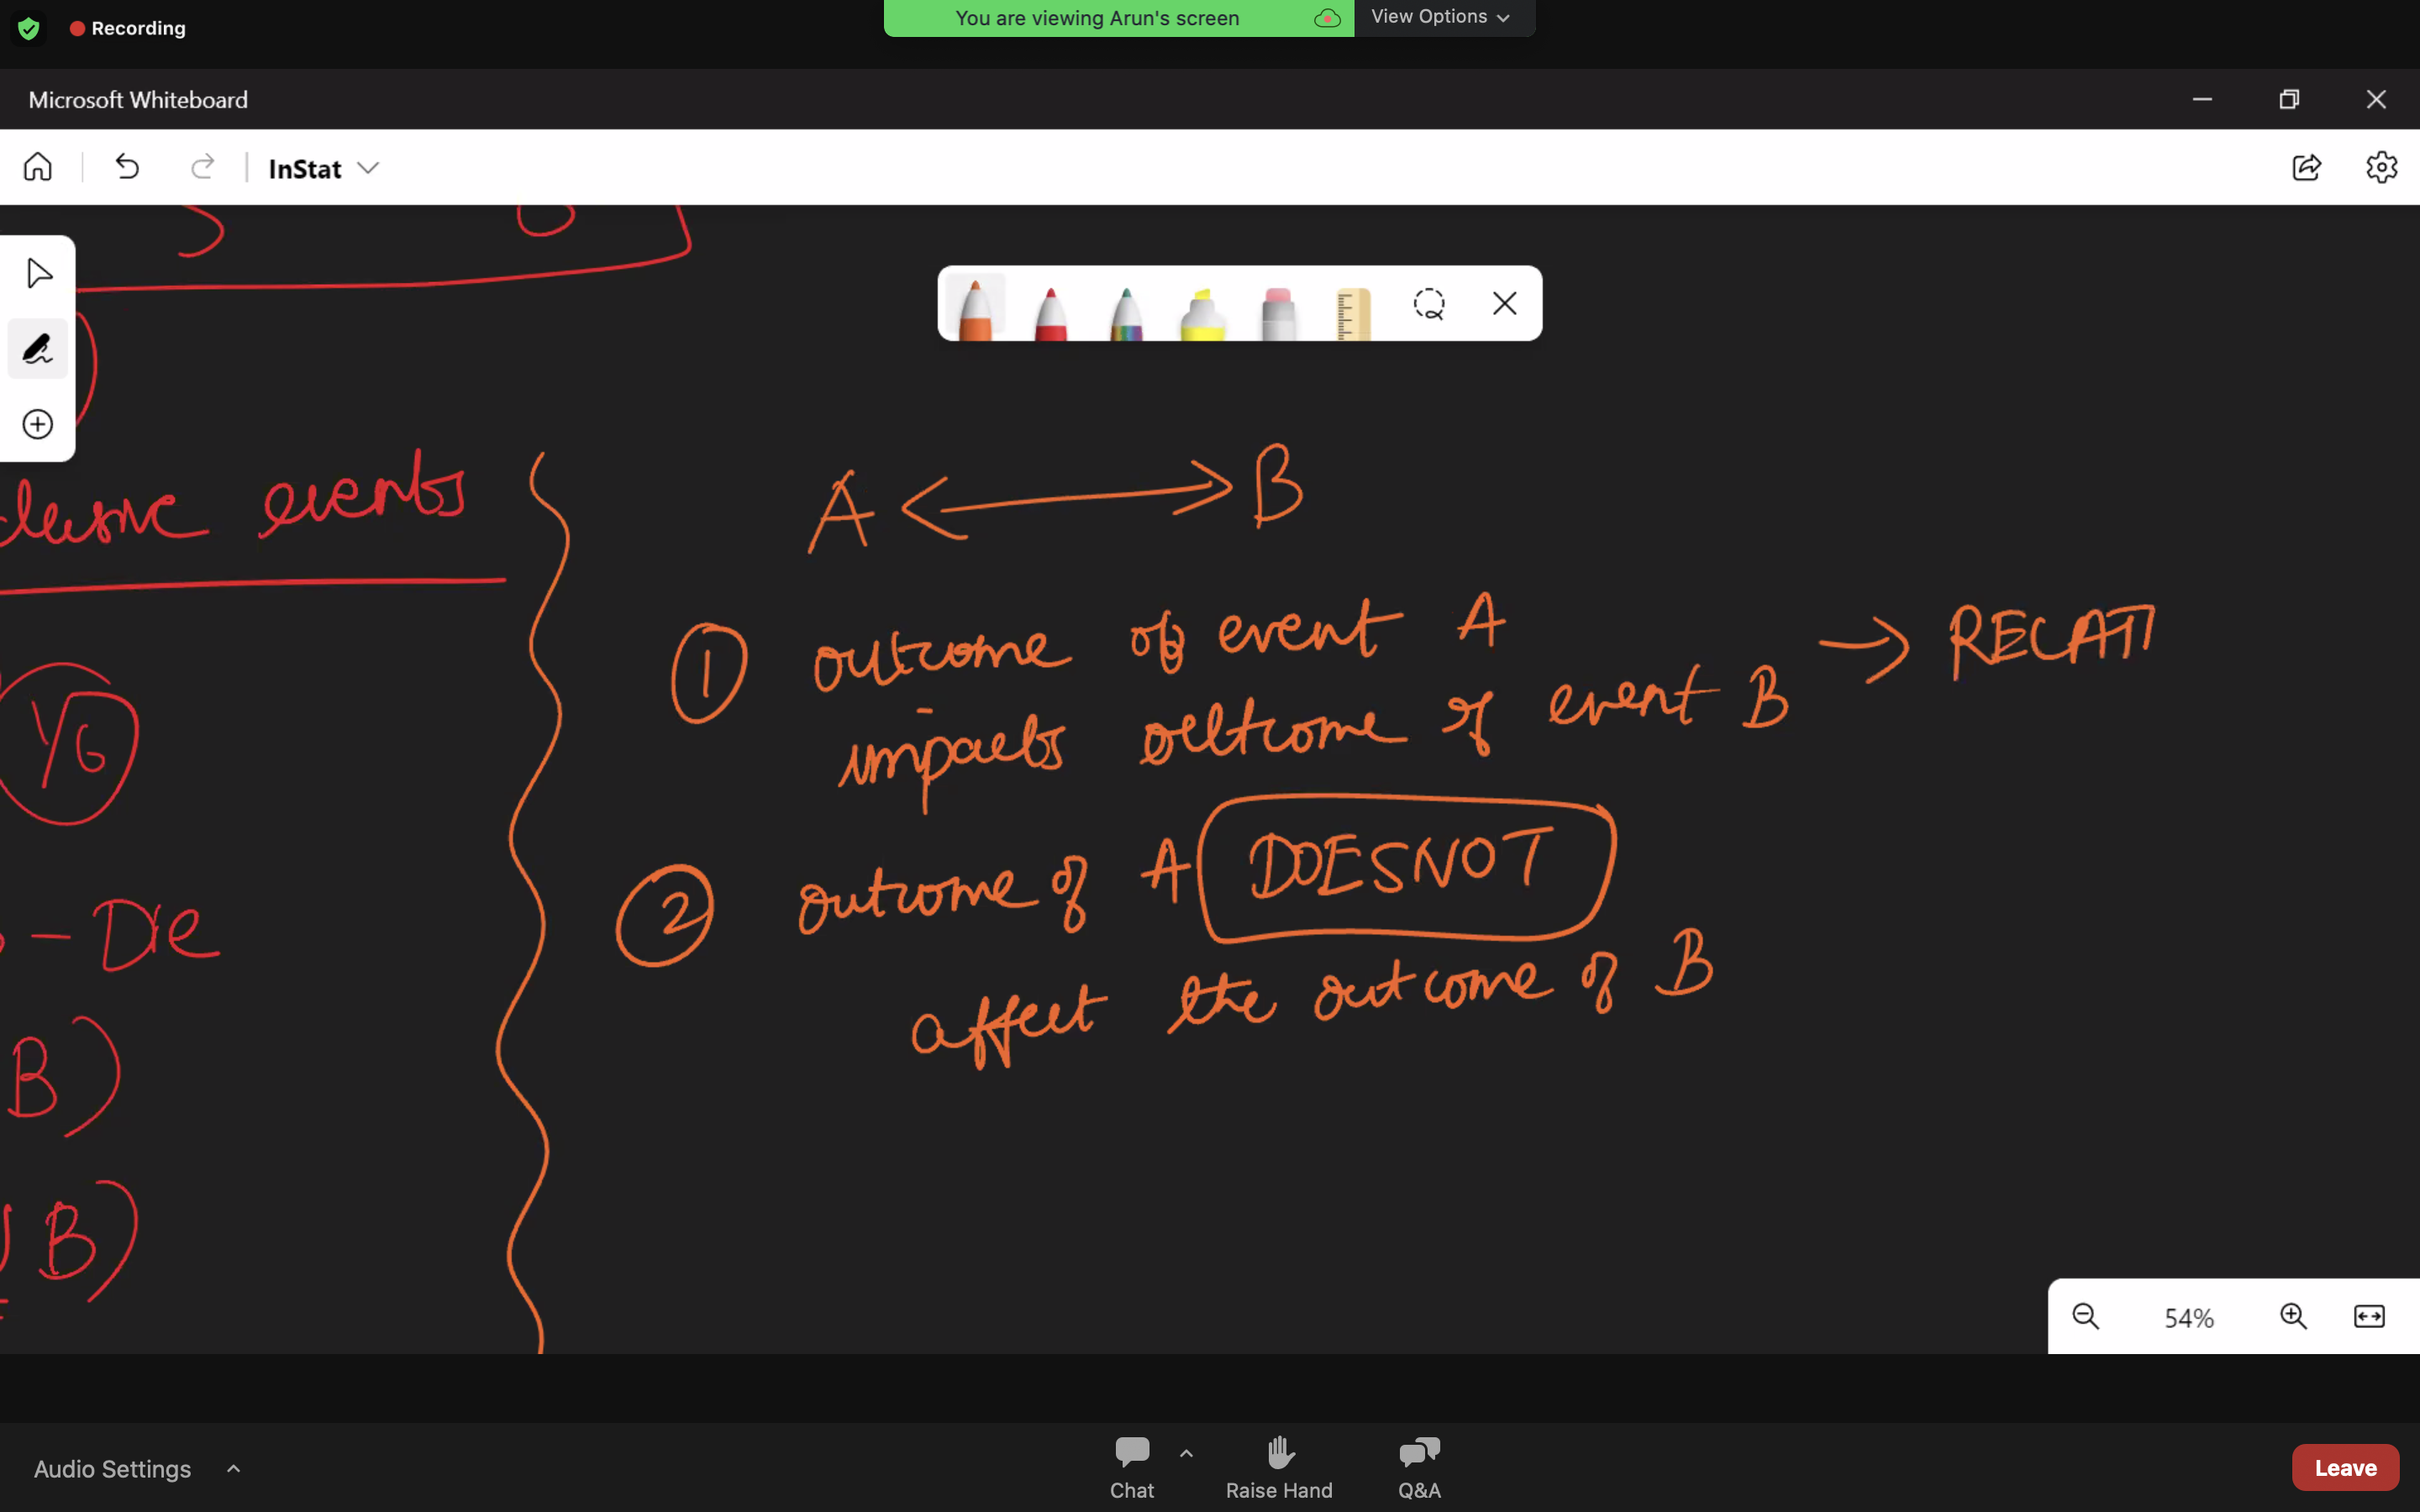 Recording
You are viewing Arun's screen
View Options
Microsoft Whiteboard
InStat
events
A B
1 outcome of event A
impacts outcome of event B → RECATI
2 outcome of A DOESNOT
affect the outcome of B
1/6
- Die
B)
B)
54%
Audio Settings
Chat
Raise Hand
Q&A
Leave